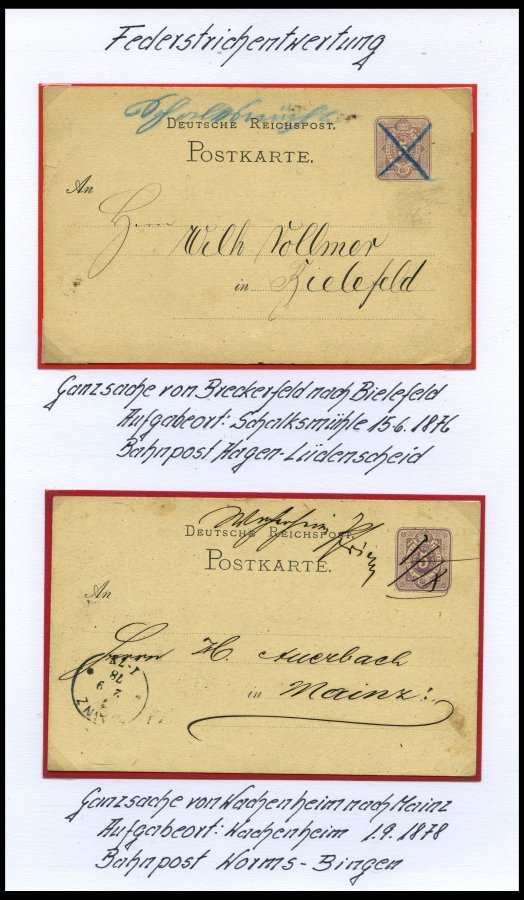 Federstrichentwertung
Schalksmühle
DEUTSCHE REICHSPOST.
POSTKARTE.
An
Herrn Wilh Vollmer
in Bielefeld
Ganzsache von Breckerfeld nach Bielefeld
Aufgabeort: Schalksmühle 15.6.1876
Bahnpost Hagen-Lüdenscheid
DEUTSCHE REICHSPOST.
POSTKARTE.
An
Herrn H. Auerbach
in Mainz!
Ganzsache von Wachenheim nach Mainz
Aufgabeort: Wachenheim 1.9.1878
Bahnpost Worms-Bingen